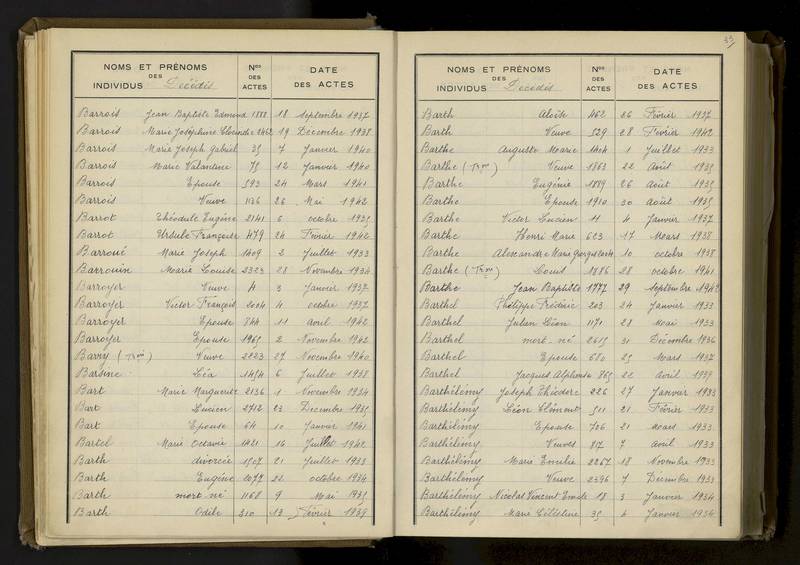 NOMS ET PRÉNOMS DES INDIVIDUS Décédés Nos DES ACTES DATE DES ACTES
Barrois Jean Baptiste Edmond 1888 18 Septembre 1937
Barrois Marie Joséphine 2462 19 Décembre 1938
Barrois Marie Joseph Gabriel 35 7 Janvier 1940
Barrois Marie Valentine 75 12 Janvier 1940
Barrois Epouse 593 24 Mars 1941
Barrois Veuve 1136 26 Mai 1942
Barrot Théodule Eugène 2141 6 octobre 1935
Barrot Ursule Françoise 479 24 Février 1942
Barroué Marie Joseph 1409 2 Juillet 1933
Barrouin Marie Louise 2323 28 Novembre 1934
Barroyer Veuve 4 3 Janvier 1937
Barroyer Victor François 2004 4 octobre 1937
Barroyer Epouse 844 11 Avril 1942
Barroyer Epouse 1965 2 Novembre 1942
Barry (Tron) Veuve 2223 27 Novembre 1940
Barsine Léa 1454 6 Juillet 1938
Bart Marie Marguerite 2136 1 Novembre 1934
Bart Lucien 2712 23 Décembre 1935
Bart Epouse 64 10 Janvier 1941
Bartel Marie Octavie 1421 16 Juillet 1942
Barth divorcée 1507 21 Juillet 1933
Barth Eugène 2077 22 octobre 1934
Barth mort-né 1168 9 Mai 1935
Barth Odile 310 13 Février 1939
33
NOMS ET PRÉNOMS DES INDIVIDUS Décédés Nos DES ACTES DATE DES ACTES
Barth Aloïse 462 26 Février 1937
Barth Veuve 529 28 Février 1942
Barthe Auguste Marie 1404 1 Juillet 1933
Barthe (Tron) Veuve 1863 22 Août 1935
Barthe Eugénie 1889 26 Août 1935
Barthe Epouse 1910 30 Août 1935
Barthe Victor Lucien 11 4 Janvier 1937
Barthe Henri Marie 603 17 Mars 1938
Barthe Alexandre Marie 10 octobre 1938
Barthe (Tron) Louis 1886 28 octobre 1941
Barthe Jean Baptiste 1777 29 Septembre 1942
Barthel Philippe Frédéric 203 24 Janvier 1933
Barthel Julien Léon 1171 28 Mai 1933
Barthel mort-né 2615 31 Décembre 1936
Barthel Epouse 680 25 Mars 1937
Barthel Jacques Alphonse 865 22 Avril 1939
Barthélémy Joseph Théodore 226 27 Janvier 1933
Barthélémy Léon Clément 511 21 Février 1933
Barthélémy Epouse 726 21 Mars 1933
Barthélémy Veuves 817 7 Avril 1933
Barthélémy Marie Emélie 2267 18 Novembre 1933
Barthélémy Veuve 2396 7 Décembre 1933
Barthélémy Nicolas Vincent Emile 18 3 Janvier 1934
Barthélémy Marie Célestine 35 4 Janvier 1934